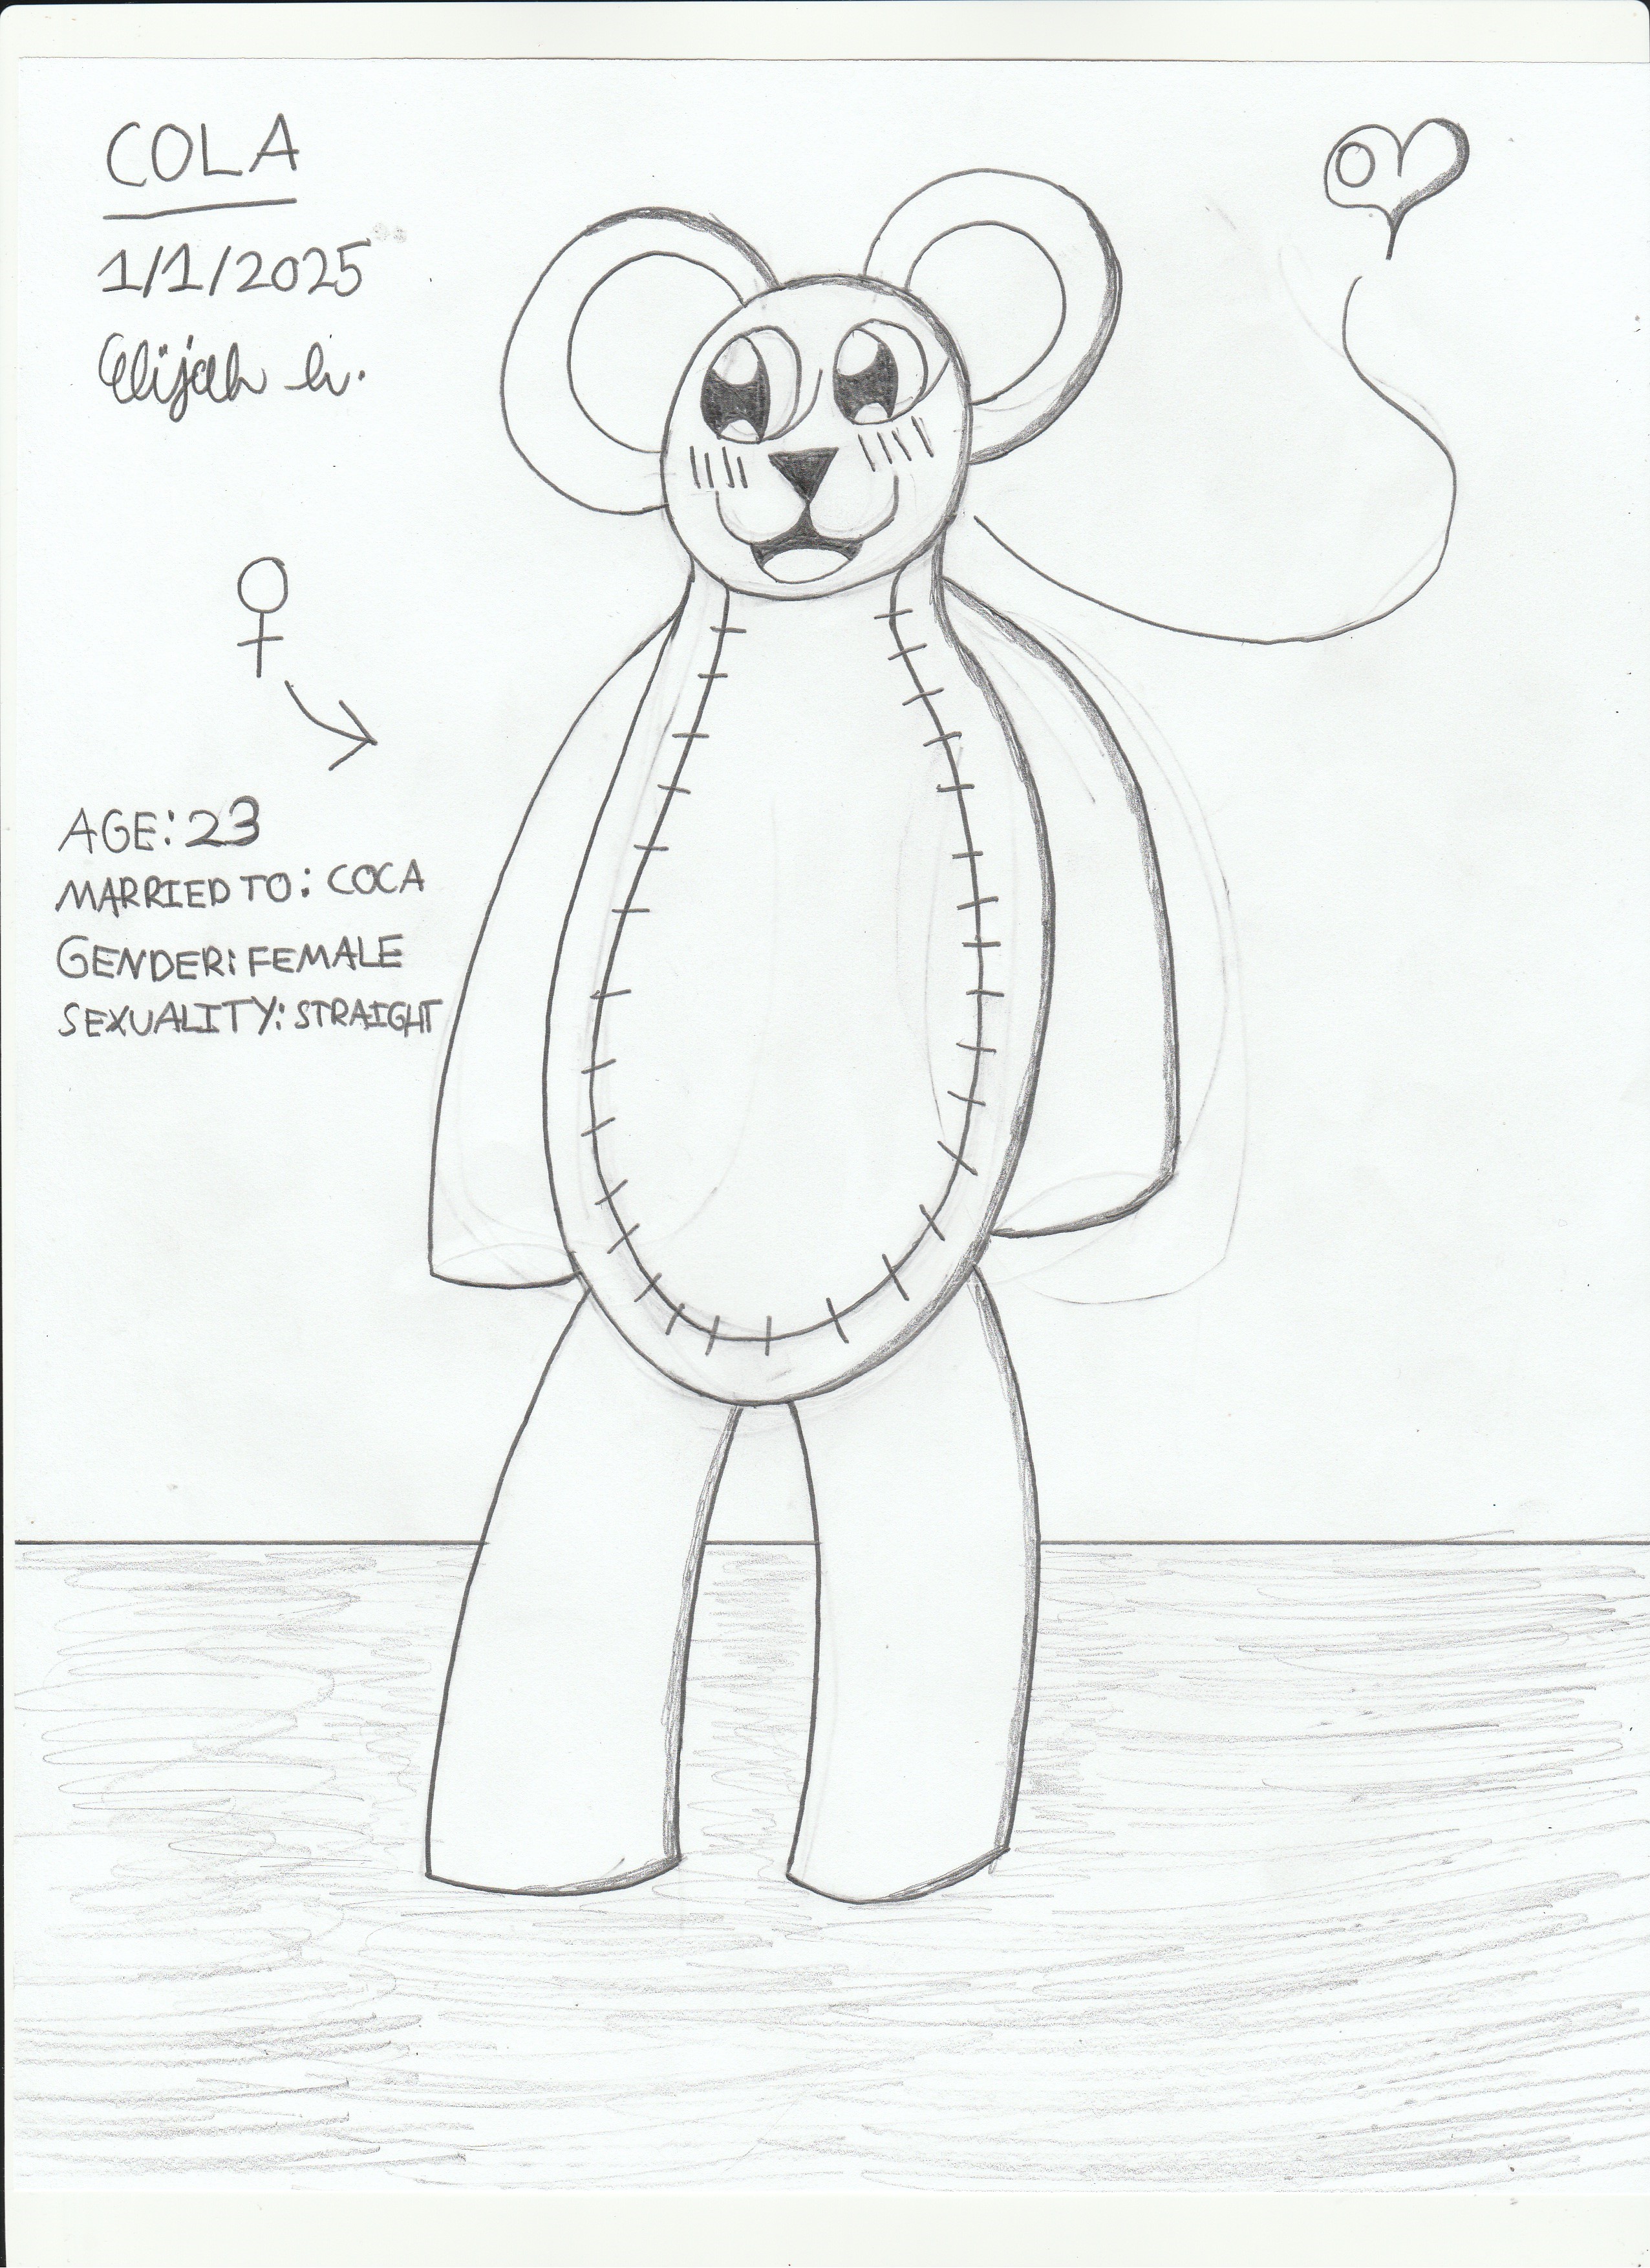 COLA
1/1/2025
Elijah
AGE: 23
MARRIED TO: COCA
GENDER: FEMALE
SEXUALITY: STRAIGHT